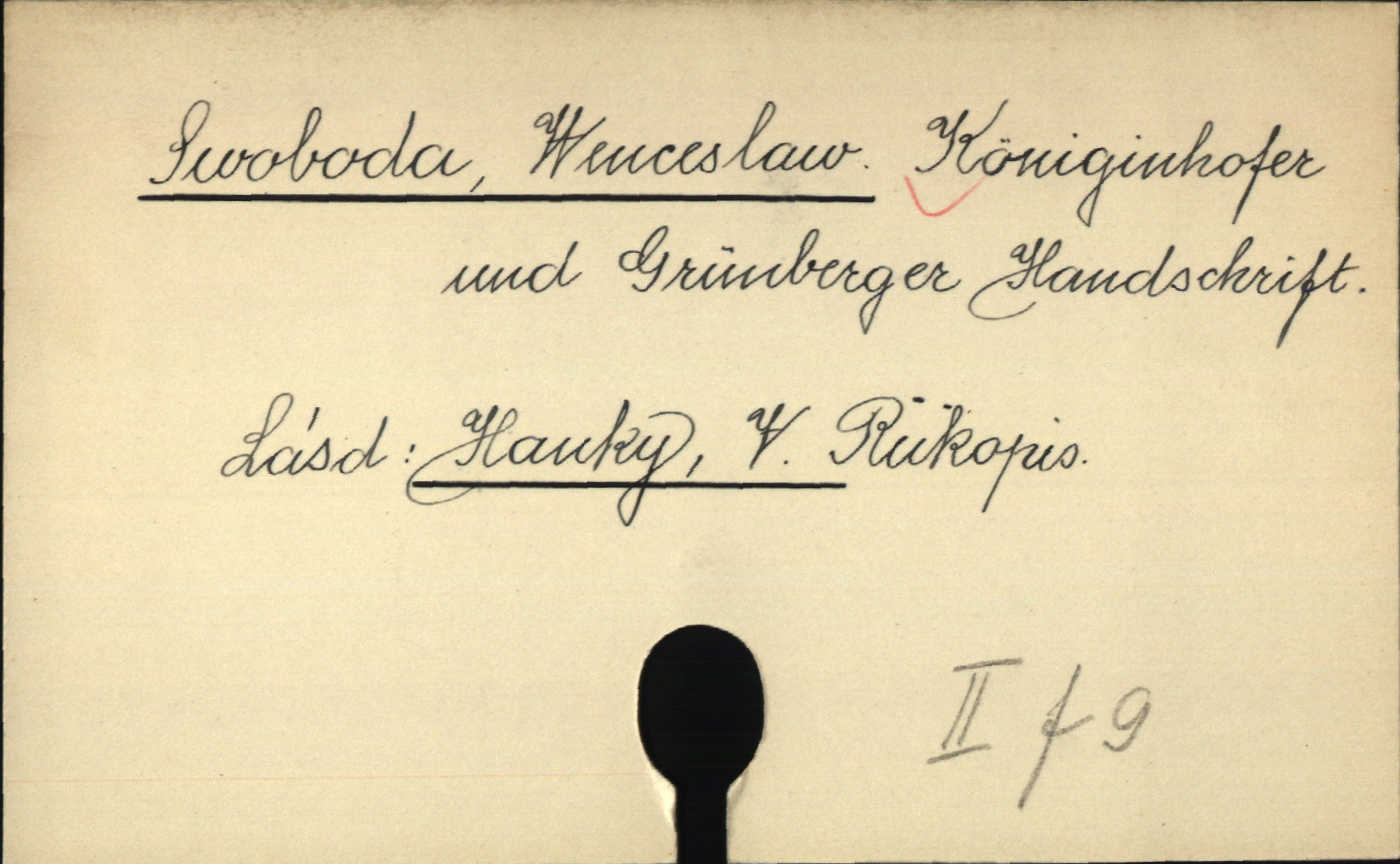 Swoboda, Wenceslaw. Königinhofer
und Grünberger Handschrift.
Lásd: Hanky, V. Rükopis.
II f 9